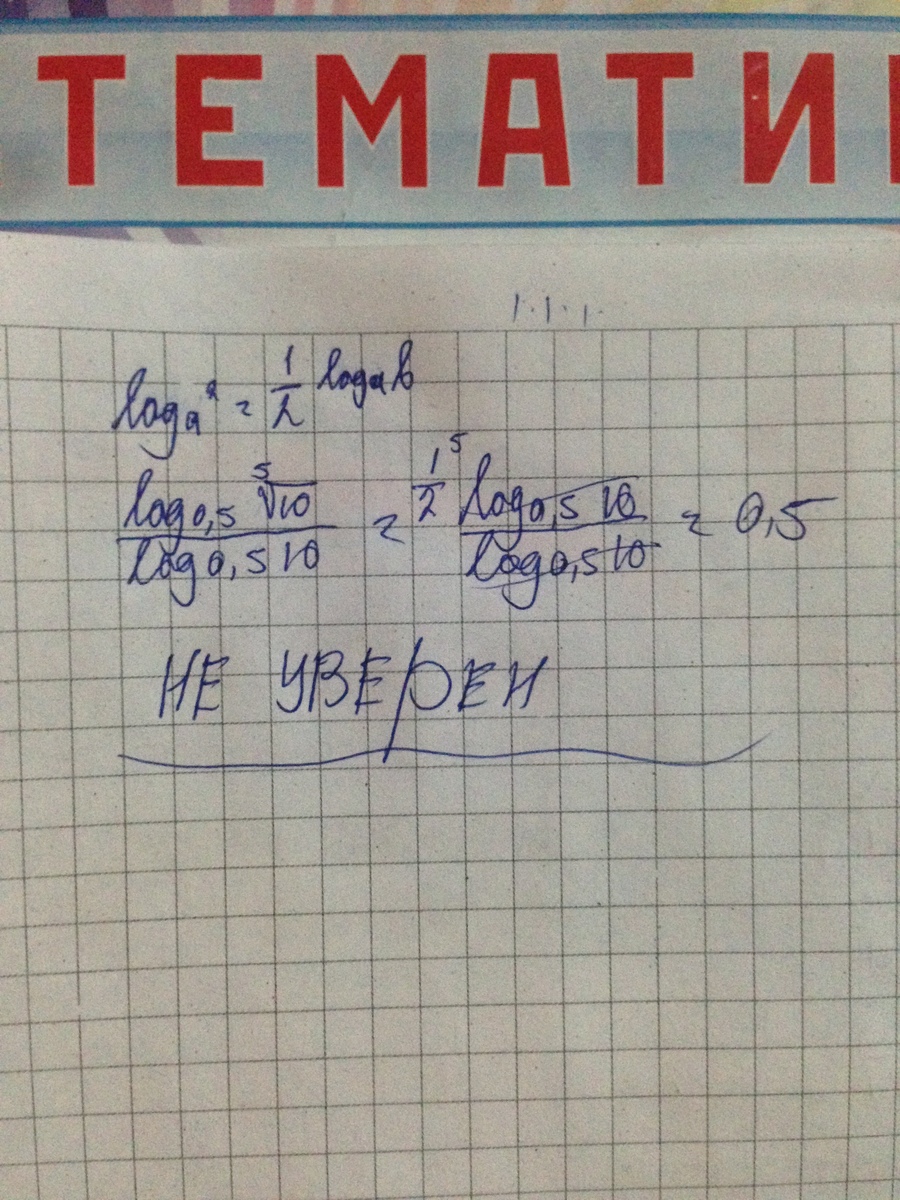 ТЕМАТИ
log_a^2 = 1/2 log_a b
log_0,5 ⁵√10 / log_0,5 10 = 1/2^5 log_0,5 10 / log_0,5 10 = 0,5
НЕ УВЕРЕН